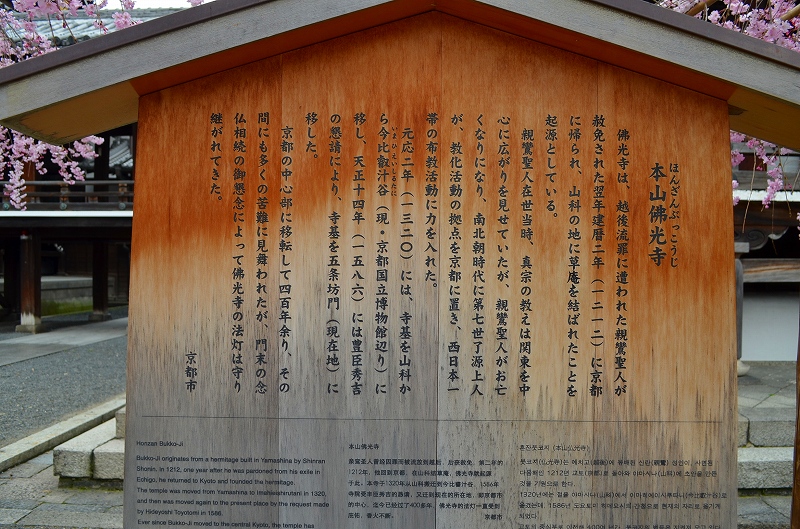 ほんざんぶっこうじ
本山佛光寺
佛光寺は、越後流罪に遭われた親鸞聖人が
赦免された翌年建暦二年（一二一二）に京都
に帰られ、山科の地に草庵を結ばれたことを
起源としている。
親鸞聖人在世当時、真宗の教えは関東を中
心に広がりを見せていたが、親鸞聖人がお亡
くなりになり、南北朝時代に第七世了源上人
が、教化活動の拠点を京都に置き、西日本一
帯の布教活動に力を入れた。
元応二年（一三二〇）には、寺基を山科か
いまひえいしるたに
ら今比叡汁谷（現・京都国立博物館辺り）に
移し、天正十四年（一五八六）には豊臣秀吉
の懇請により、寺基を五条坊門（現在地）に
移した。
京都の中心部に移転して四百年余り、その
間にも多くの苦難に見舞われたが、門末の念
仏相続の御懇念によって佛光寺の法灯は守り
継がれてきた。
京都市
Honzan Bukko-Ji
Bukko-Ji originates from a hermitage built in Yamashina by Shinran
Shonin. In 1212, one year after he was pardoned from his exile in
Echigo, he returned to Kyoto and founded the hermitage.
The temple was moved from Yamashina to Imahieishirutani in 1320,
and then was moved again to the present place by the request made
by Hideyoshi Toyotomi in 1586.
Ever since Bukko-Ji moved to the central Kyoto, the temple has
本山佛光寺
1212年，他回到京都，在山科结草庵，佛光寺就起源
于此。本寺于1320年从山科搬迁到今比叡汁谷，1586年
京都市
혼잔붓코지 (本山仏光寺)